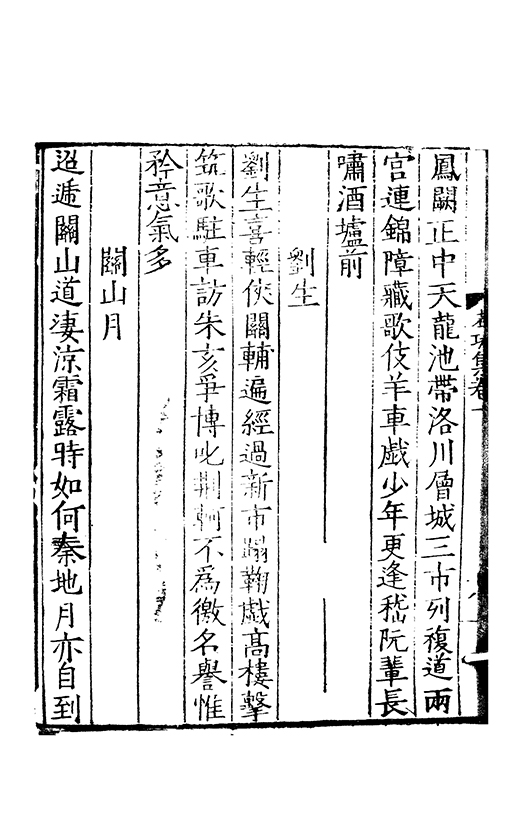 鳳闕正中天龍池帶洛川層城三市列複道兩
宫連錦障藏歌伎羊車戱少年更逢嵇阮輩長
嘯酒壚前
劉生
劉生喜輕俠關輔遍經過新市蹋鞠戱高樓擊
筑歌駐車訪朱亥爭博叱荆軻不爲徼名譽惟
矜意氣多
關山月
迢遞關山道淒涼霜露時如何秦地月亦自到